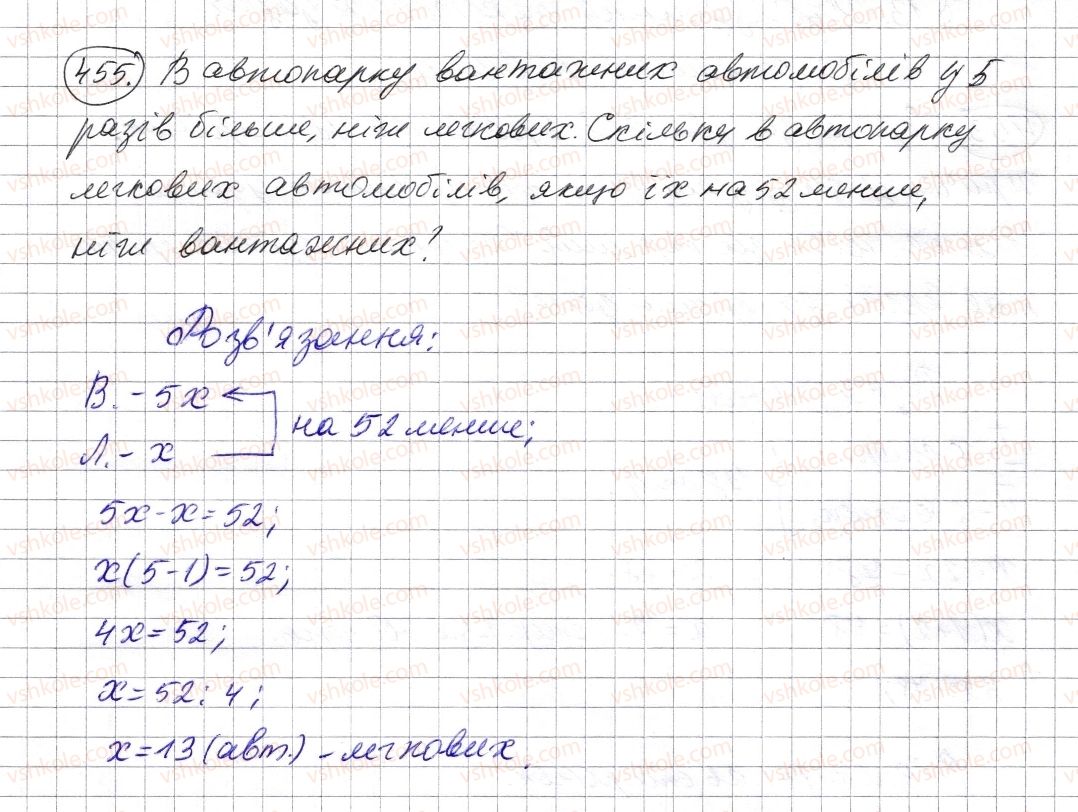 455. В автопарку вантажних автомобілів у 5
разів більше, ніж легкових. Скільки в автопарку
легкових автомобілів, якщо їх на 52 менше,
ніж вантажних?
Розв'язання:
В. - 5х
на 52 менше;
Л. - х
5х - х = 52;
х(5-1) = 52;
4х = 52;
х = 52 : 4;
х = 13 (авт.) - легкових.